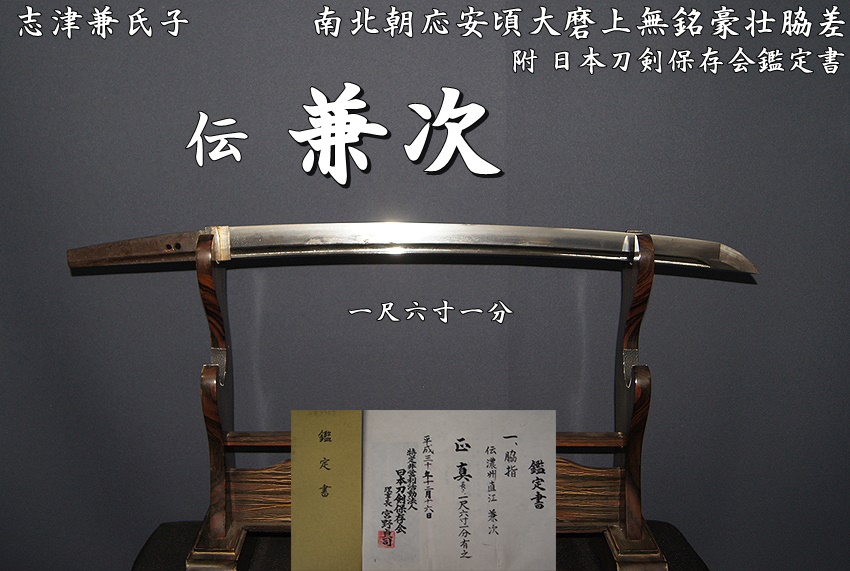 志津兼氏子
南北朝応安頃大磨上無銘豪壮脇差
附 日本刀剣保存会鑑定書
伝 兼次
一尺六寸一分
鑑定書
鑑定書
一、脇指
伝濃州直江 兼次
正真 長一尺六寸一分有之
平成三十年十二月十六日
特定非営利活動法人
日本刀剣保存会
理事長 宮野